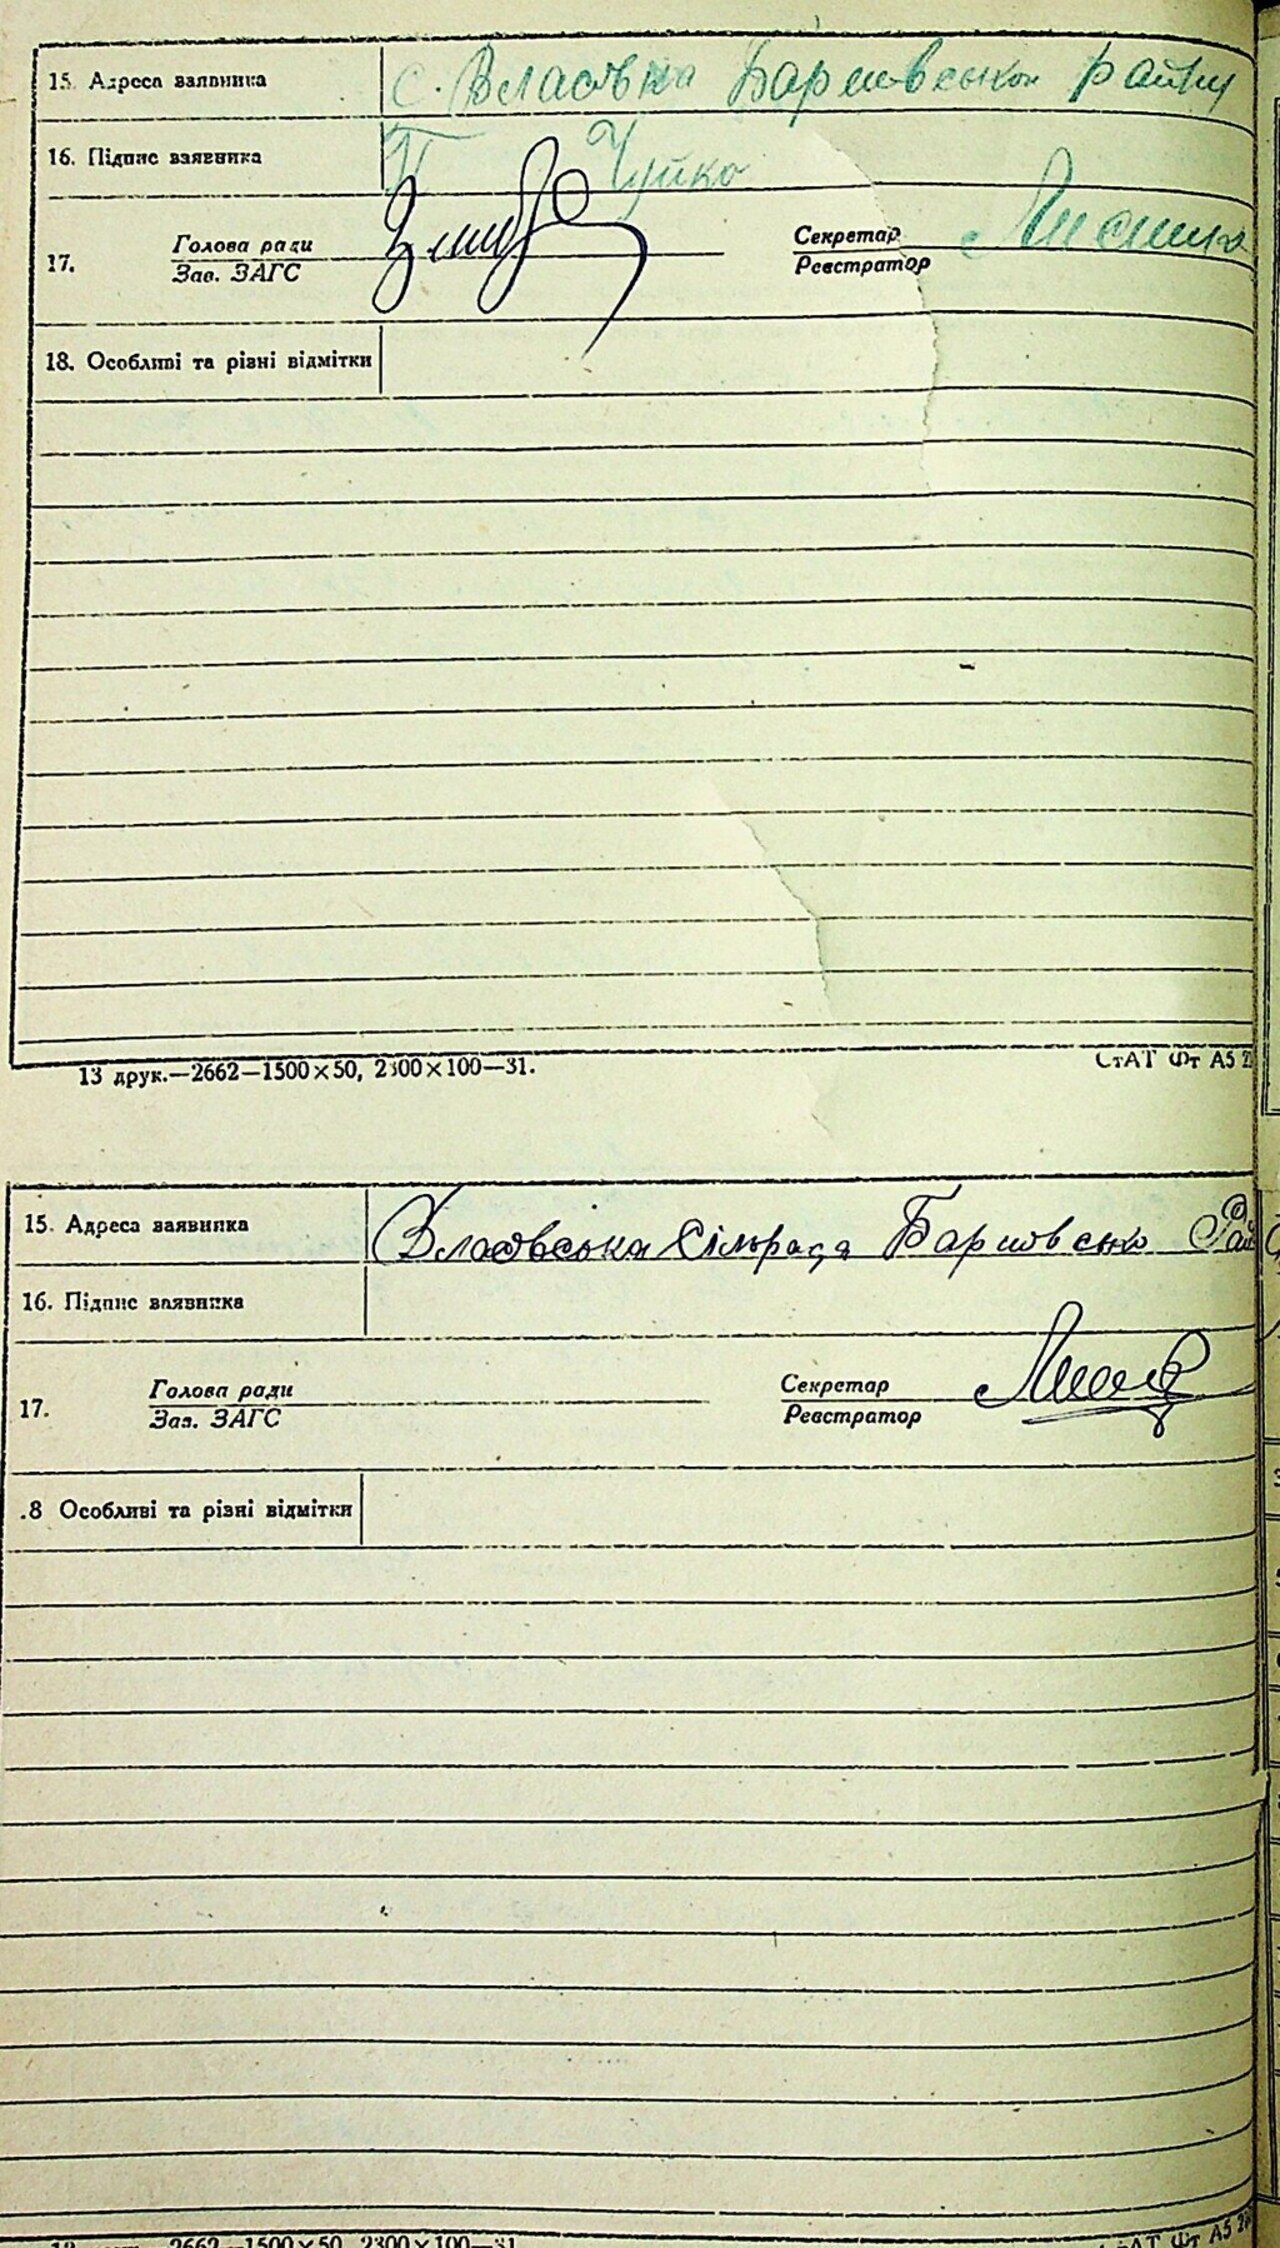 15. Адреса заявника с. Власівка Баришівського району
16. Підпис заявника П Чуйко
17. Голова ради Секретар
Зав. ЗАГС Реєстратор
18. Особливі та різні відмітки
13 друк.—2662—1500×50, 2300×100—31.
СтАТ Фт А5 2
15. Адреса заявника Власівська Сільрада Баришівсько Рай
16. Підпис заявника
17. Голова ради Секретар
Зав. ЗАГС Реєстратор
.8 Особливі та різні відмітки
2662—1500×50, 2300×100—31
АТ Фт А5